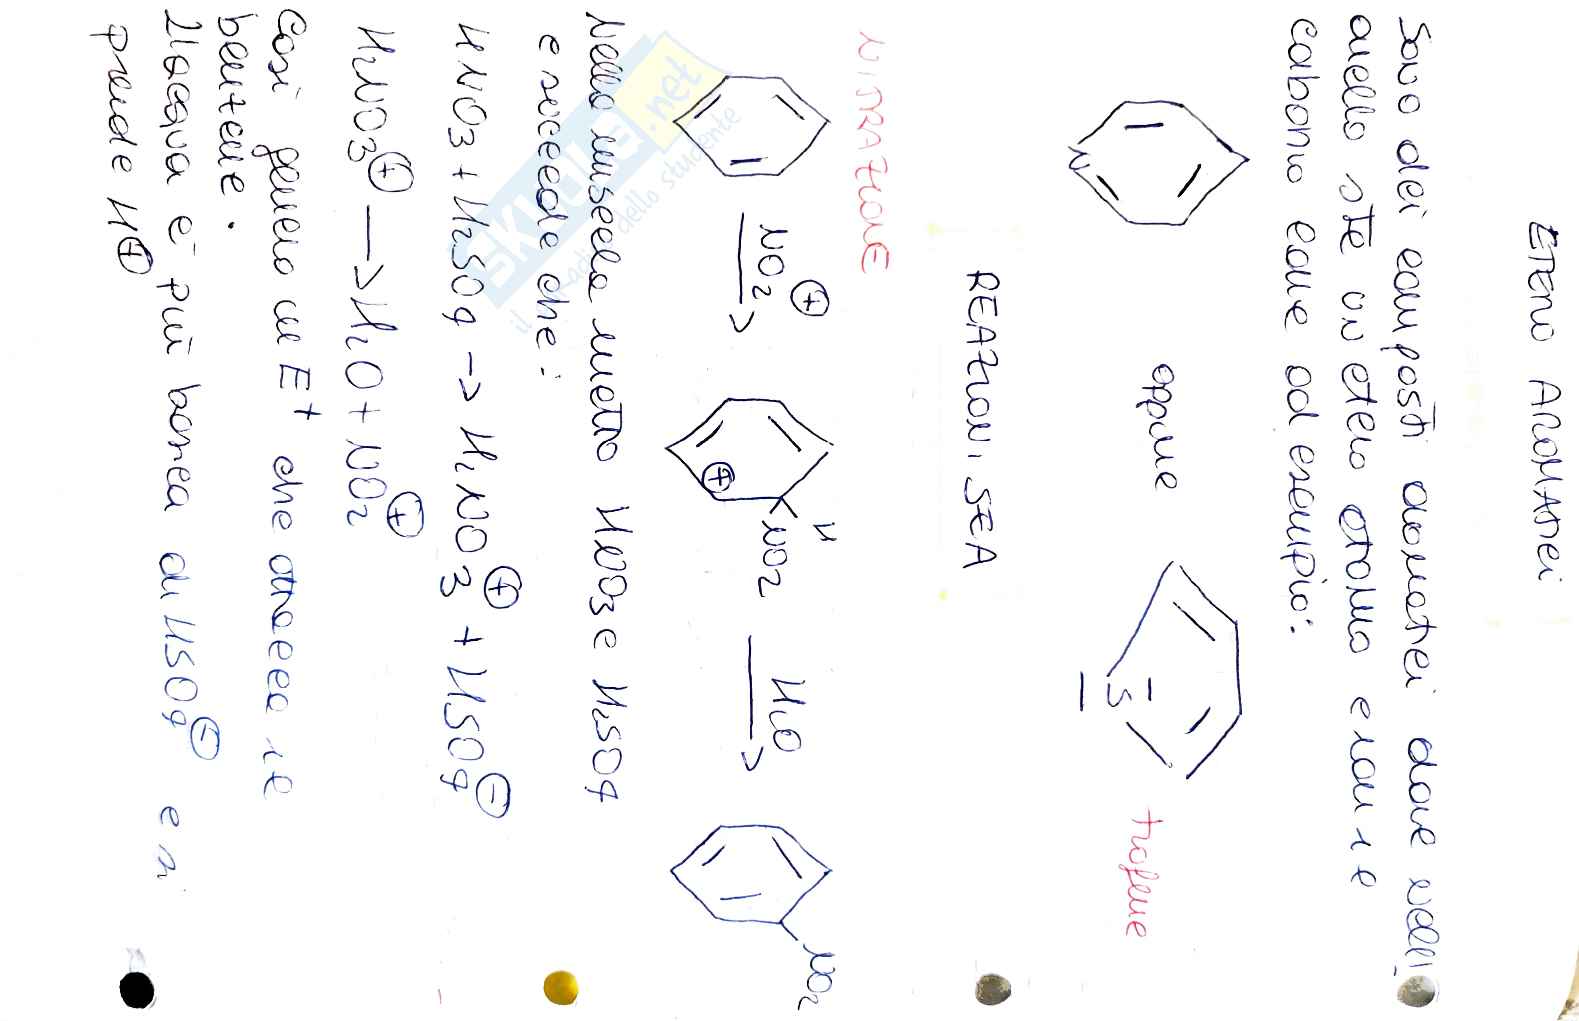 ETERO AROMATICI
Sono dei composti aromatici dove nell'
anello sta un etero atomo e non il
carbonio come ad esempio:
N
oppure
S
tiofene
REAZIONI SEA
NITRAZIONE
NO2 ⊕
⊕
H
NO2
H2O
NO2
Nella miscela metto HNO3 e H2SO4
e succede che:
HNO3 + H2SO4 → H2NO3 ⊕ + HSO4 ⊖
H2NO3 ⊕ → H2O + NO2 ⊕
Così genero un E+ che attacca il
benzene.
L'acqua è più basica di HSO4 ⊖ e si
prende H ⊕
SKUOLA.net
il dello studente